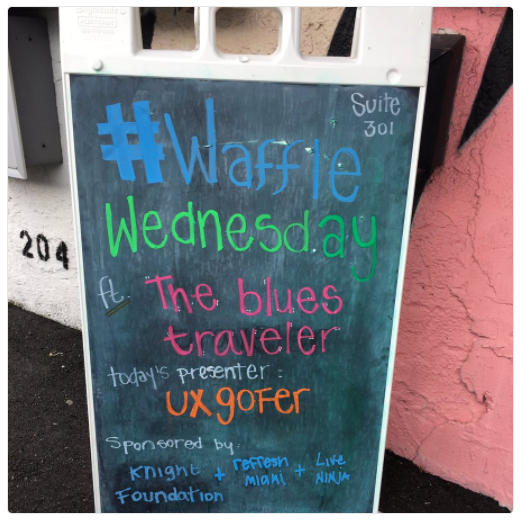 Suite
301
#Waffle
Wednesday
ft. The blues
traveler
today's presenter:
UX gofer
Sponsored by:
Knight + refresh miami + Live NINJA
Foundation
204